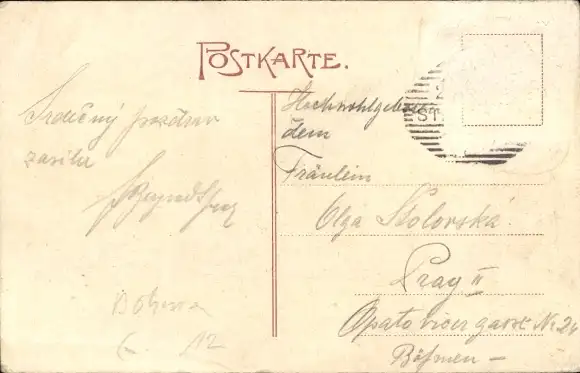 POSTKARTE.
Srdečný pozdrav
zasílá
Hochwohlgeboren
dem
Fräulein
Olga Skolovská
Prag II
Opatovicergasse № 24
Böhmen –
12
ST